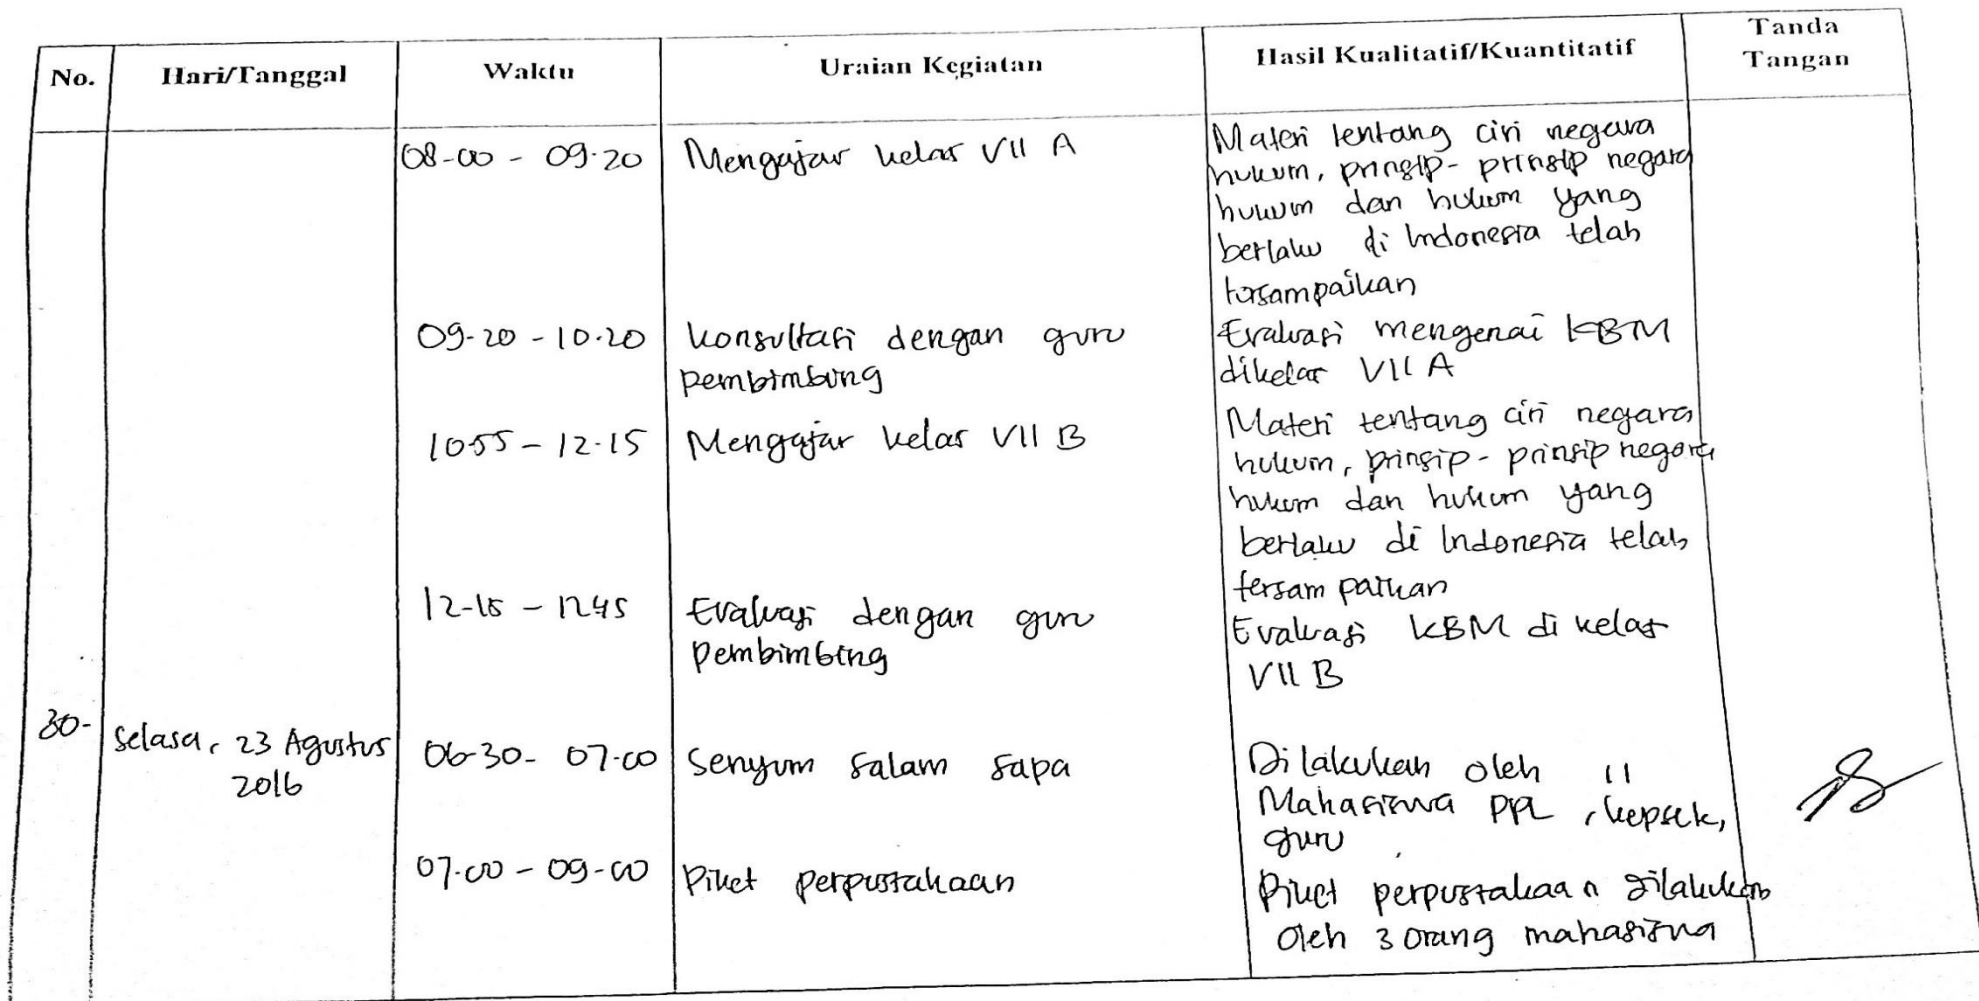 No. Hari/Tanggal Waktu Uraian Kegiatan Hasil Kualitatif/Kuantitatif Tanda
Tangan
08-00 - 09.20 Mengajar kelas VII A Materi tentang ciri negara
hukum, prinsip-prinsip negara
hukum dan hukum yang
berlaku di Indonesia telah
tersampaikan
09-20 - 10.20 konsultasi dengan guru Evaluasi mengenai KBM
pembimbing dikelas VII A
1055 - 12.15 Mengajar kelas VII B Materi tentang ciri negara
hukum, prinsip-prinsip negara
hukum dan hukum yang
berlaku di Indonesia telah
tersampaikan
12-15 - 1245 Evaluasi dengan guru Evaluasi KBM di kelas
pembimbing VII B
30- Selasa, 23 Agustus 06-30- 07.00 Senyum salam sapa Dilakukan oleh 11
2016 Mahasiswa PPL, kepsek,
guru
07.00 - 09-00 Piket perpustakaan Piket perpustakaan dilakukan
oleh 3 orang mahasiswa